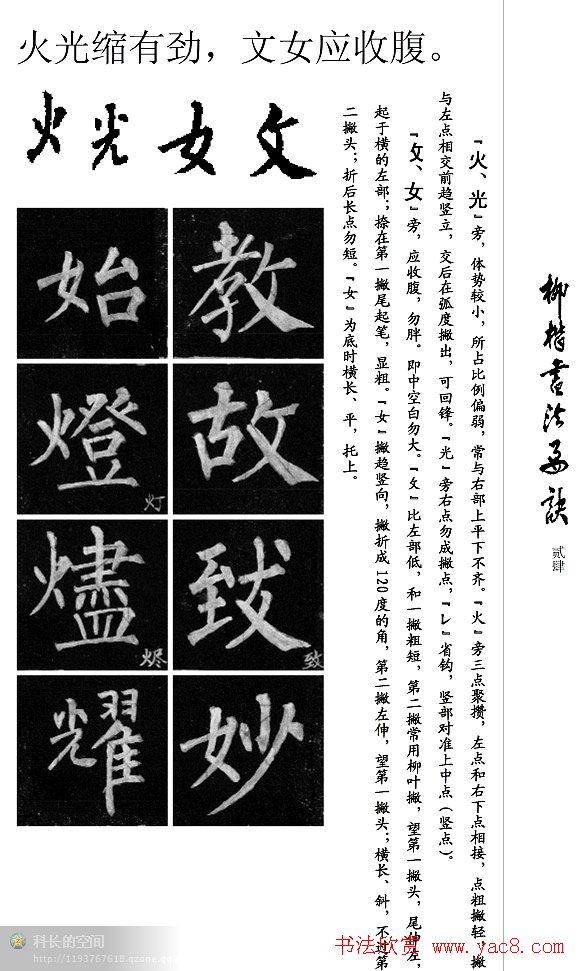 火光缩有劲，文女应收腹。
火 光 女 攵
『火、光』旁，体势较小，所占比例偏弱，常与右部上平下不齐。『火』旁三点聚攒，左点和右下点相接，点粗撇轻，撇
与左点相交前趋竖立，交后在弧度撇出，可回锋。『光』旁右点勿成撇点，『レ』省钩，竖部对准上中点（竖点）。
『攵、女』旁，应收腹，勿胖。即中空白勿大。『攵』比左部低，和一撇粗短，第二撇常用柳叶撇，望第一撇头，尾伸左，
起于横的左部；捺在第一撇尾起笔，显粗。『女』撇趋竖向，撇折成120度的角，第二撇左伸，望第一撇头；横长、斜，不过第
二撇头；折后长点勿短。『女』为底时横长、平，托上。
柳楷书法要诀
贰肆
始 教
燈 灯 故
燼 烬 致 致
耀 妙
科长的空间
http://1193767618.qzone.qq.com
书法欣赏 www.yac8.com